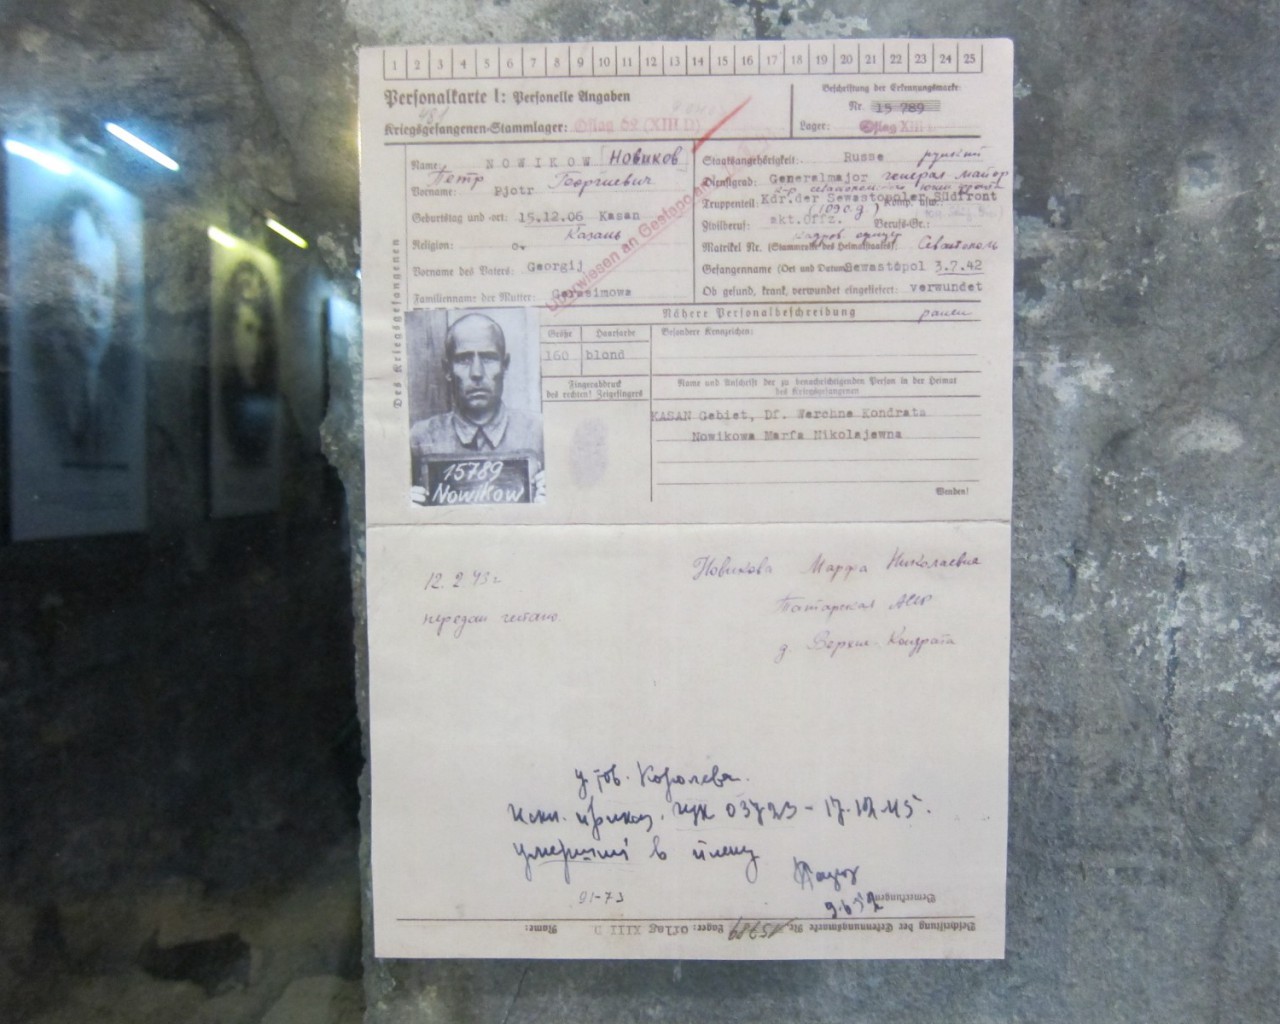 1 2 3 4 5 6 7 8 9 10 11 12 13 14 15 16 17 18 19 20 21 22 23 24 25
Personalkarte I: Personelle Angaben
Kriegsgefangenen-Stammlager: Oflag 62 (XIII D)
Beschriftung der Erkennungsmarke
Nr. 15 789
Lager: Oflag XIII
Des Kriegsgefangenen
Name: NOWIKOW Новиков
Петр Георгиевич
Vorname: Pjotr
Geburtstag und -ort: 15.12.06 Kasan
Казань
Religion:
Vorname des Vaters: Georgij
Familienname der Mutter: Gerasimowa
Überwiesen an Gestapo
Staatsangehörigkeit: Russe русский
Dienstgrad: Generalmajor генерал майор
Truppenteil: Kdr.der Sewastopoler Südfront
Komp. usw.:
(109 с.д)
Zivilberuf: akt.Offz. Berufs-Gr.:
кадров офицер
Matrikel Nr. (Stammrolle des Heimatstaates) Севастополь
Gefangennahme (Ort und Datum) Sewastopol 3.7.42
Ob gesund, krank, verwundet eingeliefert: verwundet
ранен
Nähere Personalbeschreibung
Größe Haarfarbe Besondere Kennzeichen:
160 blond
Fingerabdruck
des rechten! Zeigefingers
Name und Anschrift der zu benachrichtigenden Person in der Heimat
des Kriegsgefangenen
KASAN Gebiet, Df. Werchne Kondrata
Nowikowa Marfa Nikolajewna
Wenden!
15789
Nowikow
12.2 43г
передан гестапо
Новикова Марфа Николаевна
Татарская АССР
д. Верхне-Кондрата
у тов. Королева.
Искл. приказ. ГУК 03723 - 17.12.45.
умерший в плену
9.6.52
91-73
Bemerkungen:
Beschriftung der Erkennungsmarke Nr. 15789 Lager: Oflag XIII D Name: